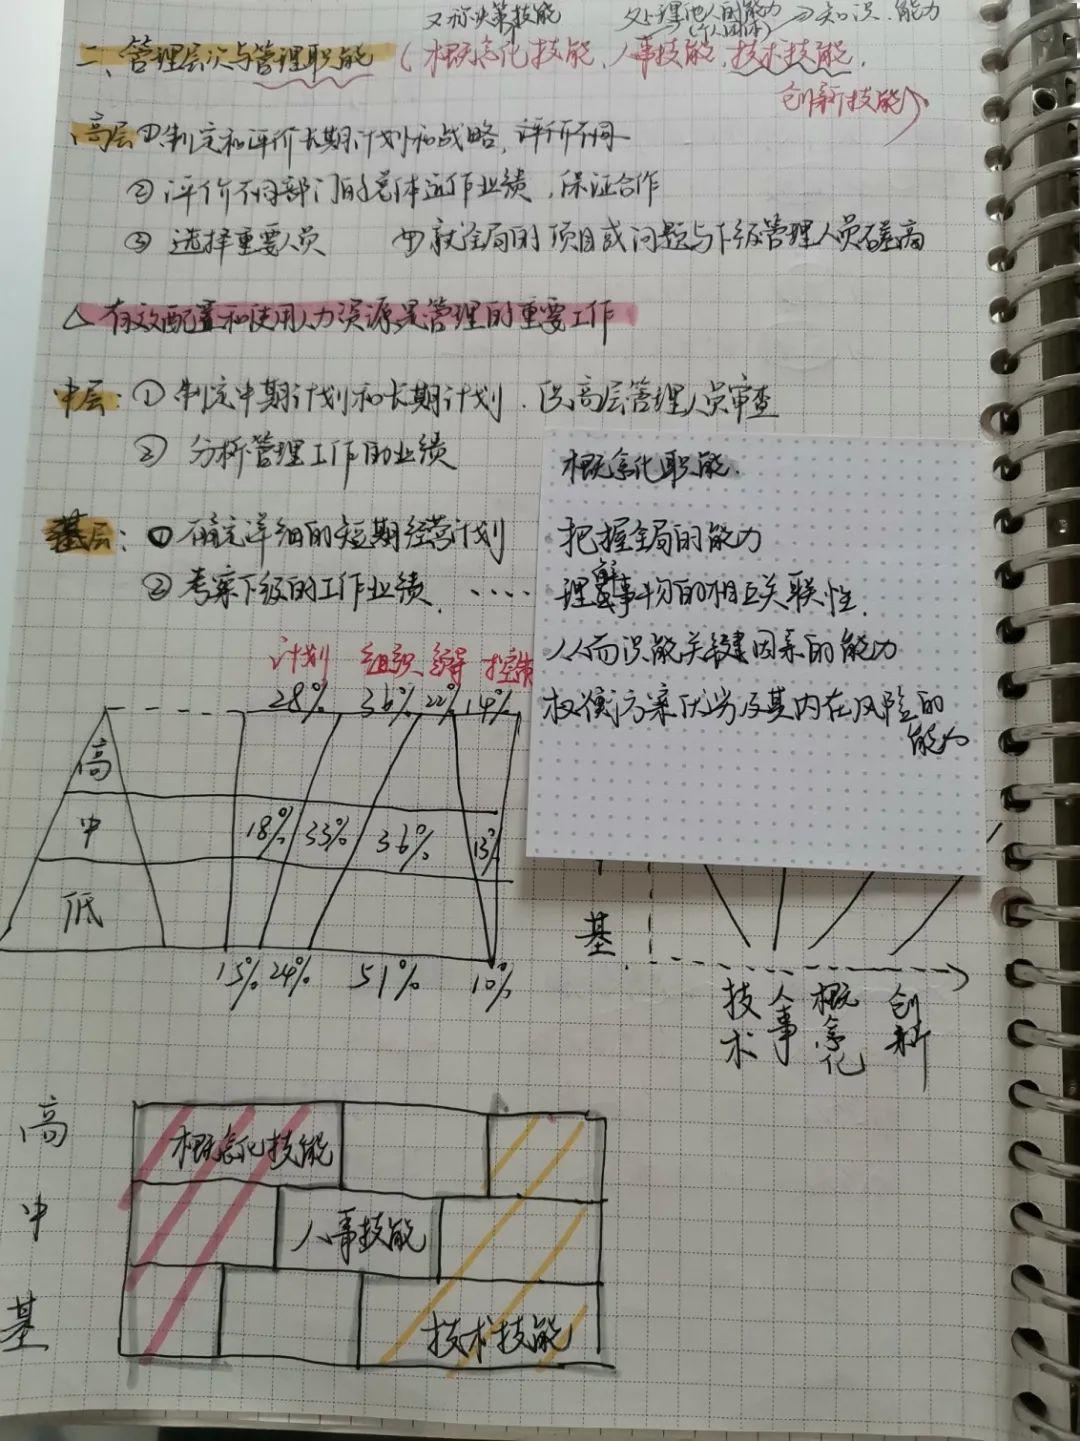 又称决策技能 处理他人的能力 ⇒知识、能力
(个人团体)
二、管理层次与管理职能 (概念化技能、人事技能、技术技能、
创新技能)
高层①制定和评价长期计划和战略,评价不同
②评价不同部门的总体运作业绩,保证合作
③ 选择重要人员 ④就全局的项目或问题与下级管理人员磋商
△有效配置和使用人力资源是管理的重要工作
中层:① 制定中期计划和长期计划,供高层管理人员审查
② 分析管理工作的业绩
基层:①确定详细的短期经营计划
②考察下级的工作业绩......
概念化职能.
把握全局的能力
理解事物的相互关联性.
从而识能关键因素的能力
权衡方案优劣及其内在风险的
能力
计划 组织 领导 控制
28% 36% 22% 14%
高
中 18% 33% 36% 13%
低
15% 24% 51% 10%
基
技术 人事 概念化 创新
高 概念化技能
中 人事技能
基 技术技能